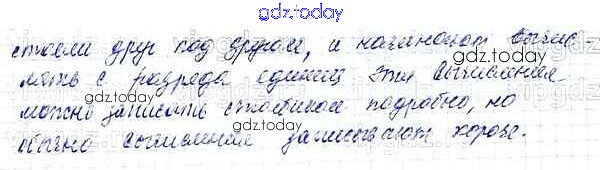 gdz.today
стояли друг под другом, и начинают вычис-
лять с разряда единиц эти вычисления
gdz.today
можно записать столбиком подробно, но
gdz.today
gdz.today
обычно вычисления записывают короче.